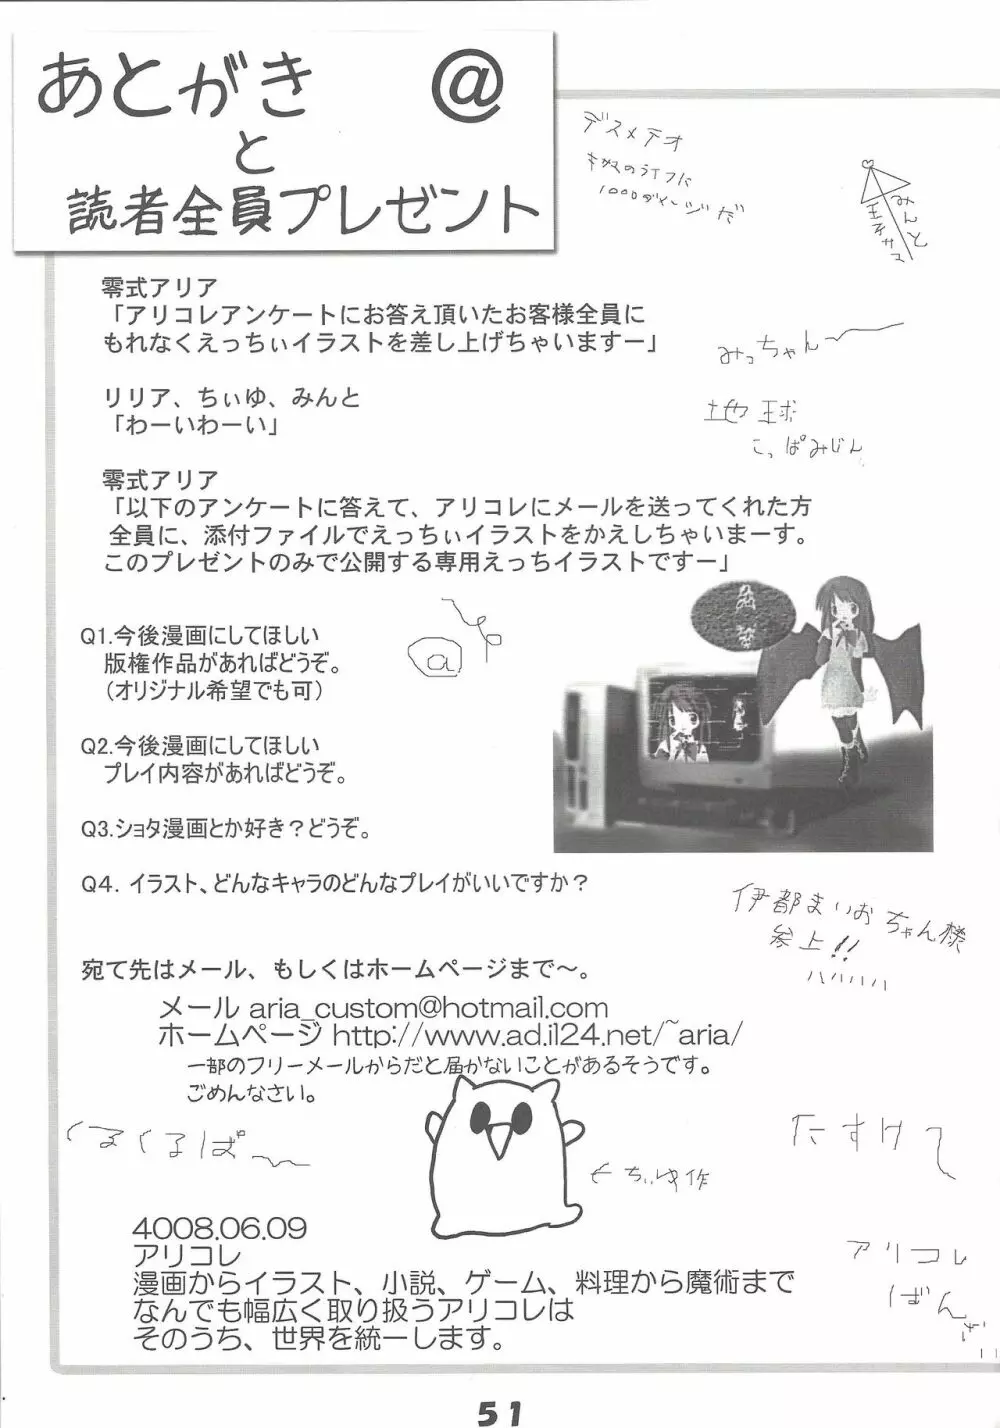 あとがき @
と
読者全員プレゼント
デスメテオ
1000ダメージだ
みんと
王子サマ
零式アリア
「アリコレアンケートにお答え頂いたお客様全員に
もれなくえっちぃイラストを差し上げちゃいますー」
みっちゃん〜
リリア、ちぃゆ、みんと
「わーいわーい」
地球
こっぱみじん
零式アリア
「以下のアンケートに答えて、アリコレにメールを送ってくれた方
全員に、添付ファイルでえっちぃイラストをかえしちゃいまーす。
このプレゼントのみで公開する専用えっちイラストですー」
Q1.今後漫画にしてほしい
版権作品があればどうぞ。
（オリジナル希望でも可）
@
Q2.今後漫画にしてほしい
プレイ内容があればどうぞ。
Q3.ショタ漫画とか好き？どうぞ。
Q4. イラスト、どんなキャラのどんなプレイがいいですか？
伊都まいおちゃん様
参上!!
ハハハハハ
宛て先はメール、もしくはホームページまで〜。
メール aria_custom@hotmail.com
ホームページ http://www.ad.il24.net/~aria/
一部のフリーメールからだと届かないことがあるそうです。
ごめんなさい。
くるくるぱ〜
←ちぃゆ作
たすけて
4008.06.09
アリコレ
漫画からイラスト、小説、ゲーム、料理から魔術まで
なんでも幅広く取り扱うアリコレは
そのうち、世界を統一します。
アリコレ
ばんざい
51